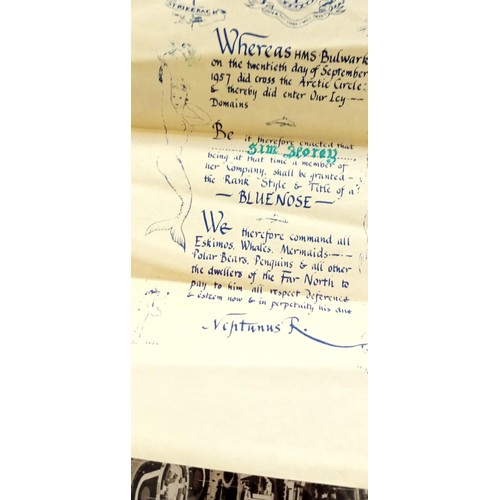 STRIKEBACK
Whereas HMS Bulwark
on the twentieth day of September
1957 did cross the Arctic Circle:
& thereby did enter Our Icy
Domains
Be it therefore enacted that
being at that time a member of
her Company, shall be granted
the Rank Style & Title of a
BLUENOSE
We therefore command all
Eskimos, Whales, Mermaids
Polar Bears, Penguins & all other
the dwellers of the Far North to
pay to him all respect Deference
& esteem now & in perpetuity his due
Neptunus R.